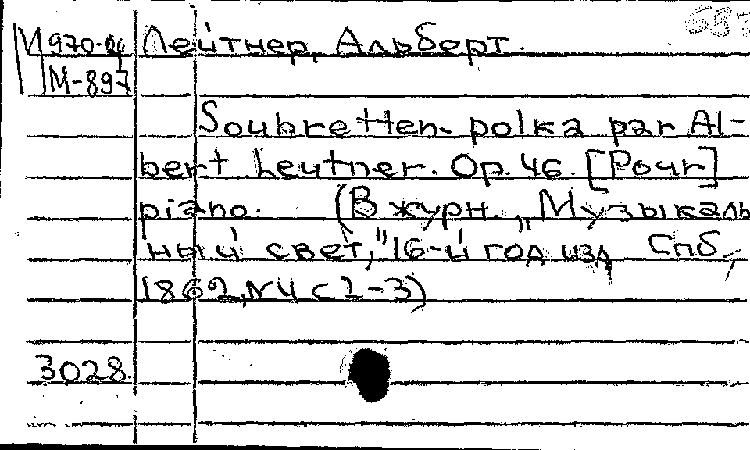 М970-04 Лейтнер, Альберт.
М-897
Soubretten-polka par Al-
bert Leutner. Op. 46. [Pour]
piano. (В журн. „Музыкаль
ный свет," 16-й год изд. Спб,
1862, N4 с 2-3)
3028.